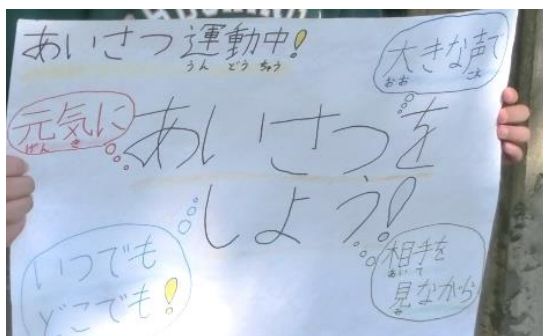 あいさつ運動中!
うんどうちゅう
大きな声で
おお こえ
元気に
げんき
あいさつを
しよう!
いつでも
どこでも!
相手を
あいて
見ながら
み